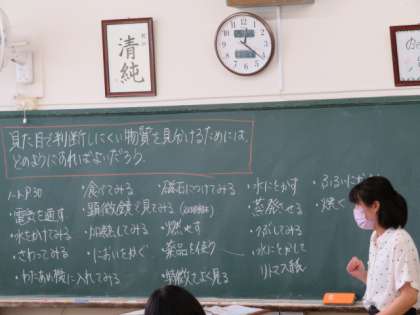 清純
見た目で判断しにくい物質を見分けるためには、
どのようにすればよいだろう。
ノートP30
・電気を通す
・水をかけてみる
・さわってみる
・わたあめ機に入れてみる
・食べてみる
・顕微鏡で見てみる
・加熱してみる
・においをかぐ
・磁石につけてみる
・燃やす
・薬品を使う
・特徴をよく見る
・水にとかす
・蒸発させる
・つぶしてみる
・水にとかして
リトマス紙
・ふるいにか
・焼く